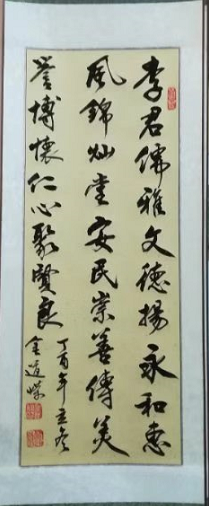 李君儒雅文德揚永和惠
風錦灿堂安民崇善傳美
誉博懷仁心聚賢良
丁酉年立冬
金道嶸